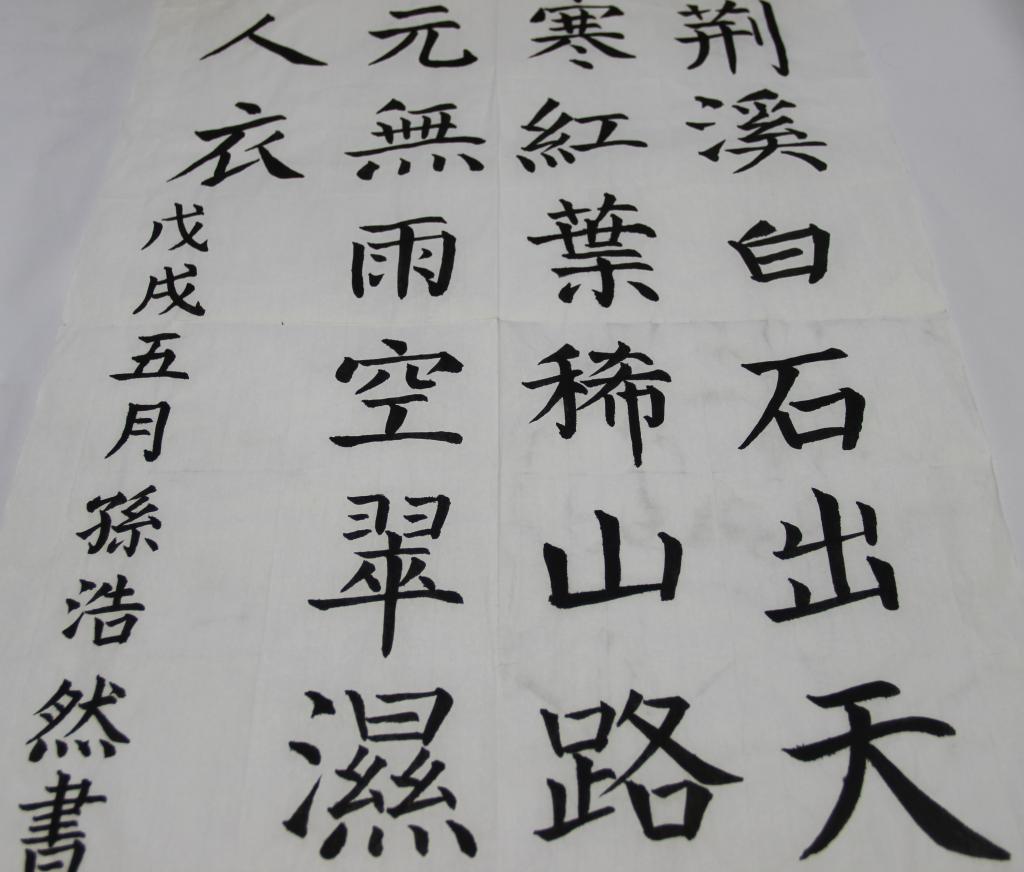 荆溪白石出天
寒紅葉稀山路
元無雨空翠濕
人衣
戊戌五月孫浩然書